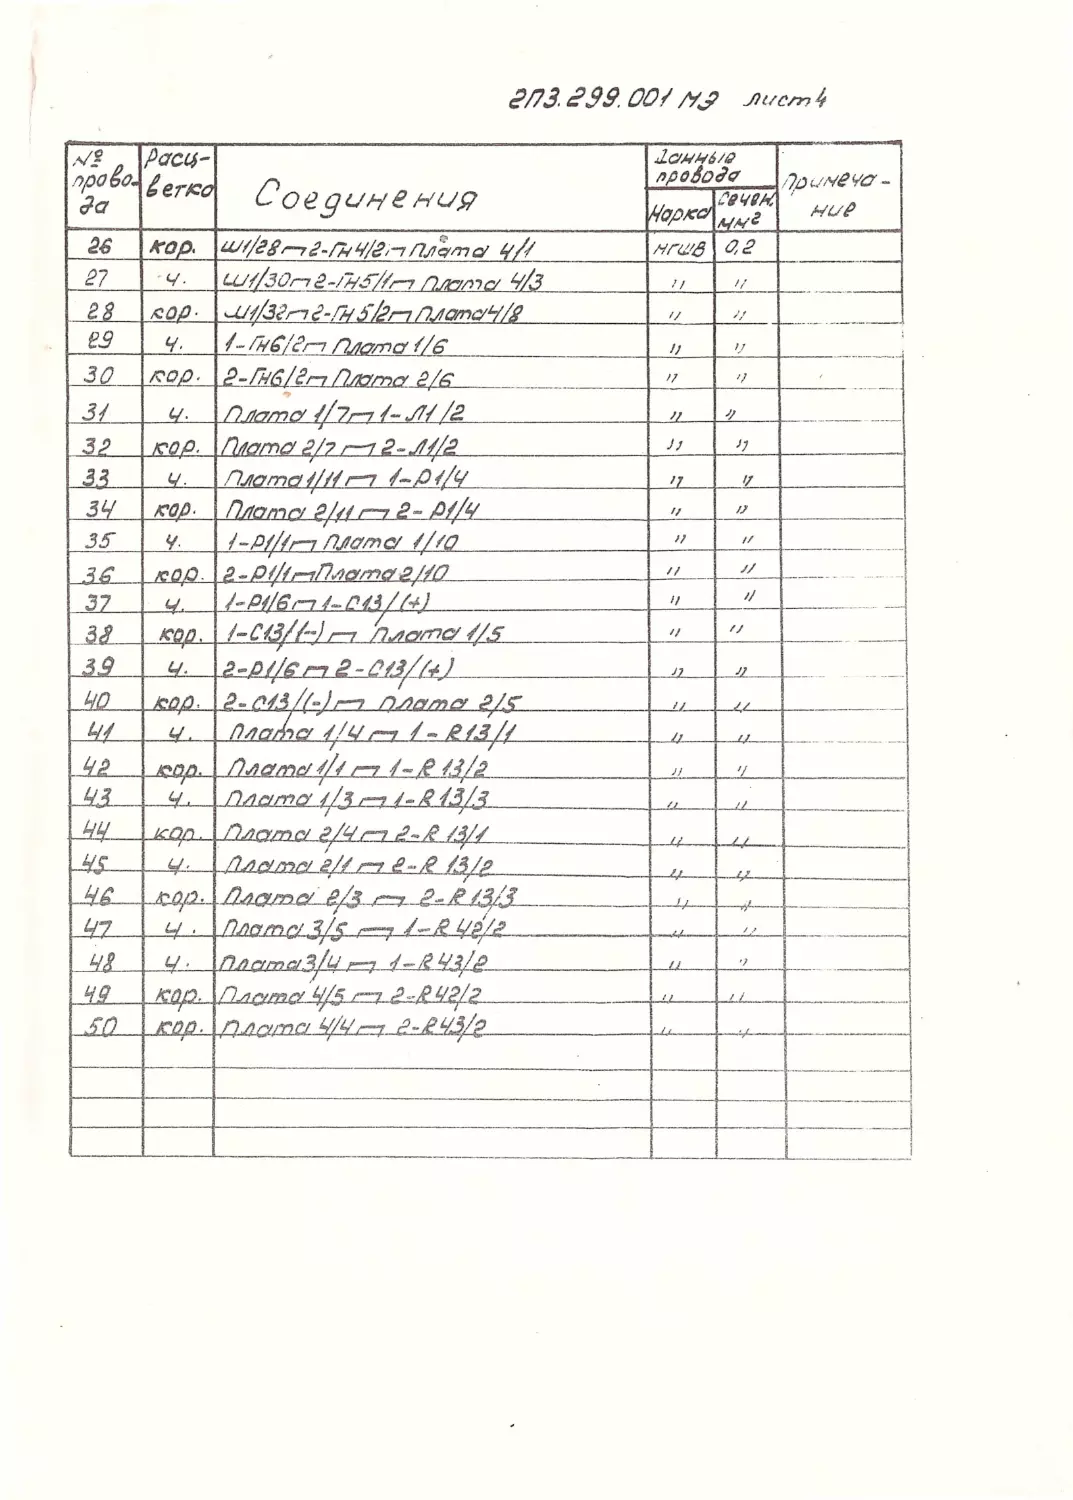 2ПЗ.299.001 МЭ лист 4
№ прово-да Расц-ветка Соединения Данные провода Примеча-ние
Марка Сечен. мм²
26 кор. Ш1/28 ⌐ 2-Гн4/2 ⌐ Плата 4/1 НГШВ 0,2
27 ч. Ш1/30 ⌐ 2-Гн5/1 ⌐ Плата 4/3 " "
28 кор. Ш1/32 ⌐ 2-Гн5/2 ⌐ Плата 4/8 " "
29 ч. 1-Гн6/2 ⌐ Плата 1/6 " "
30 кор. 2-Гн6/2 ⌐ Плата 2/6 " "
31 ч. Плата 1/7 ⌐ 1-Л1/2 " "
32 кор. Плата 2/7 ⌐ 2-Л1/2 " "
33 ч. Плата 1/11 ⌐ 1-Р1/4 " "
34 кор. Плата 2/11 ⌐ 2-Р1/4 " "
35 ч. 1-Р1/1 ⌐ Плата 1/10 " "
36 кор. 2-Р1/1 ⌐ Плата 2/10 " "
37 ч. 1-Р1/6 ⌐ 1-С13/(+) " "
38 кор. 1-С13/(-) ⌐ Плата 1/5 " "
39 ч. 2-Р1/6 ⌐ 2-С13/(+) " "
40 кор. 2-С13/(-) ⌐ Плата 2/5 " "
41 ч. Плата 1/4 ⌐ 1-R13/1 " "
42 кор. Плата 1/1 ⌐ 1-R13/2 " "
43 ч. Плата 1/3 ⌐ 1-R13/3 " "
44 кор. Плата 2/4 ⌐ 2-R13/1 " "
45 ч. Плата 2/1 ⌐ 2-R13/2 " "
46 кор. Плата 2/3 ⌐ 2-R13/3 " "
47 ч. Плата 3/5 ⌐ 1-R42/2 " "
48 ч. Плата 3/4 ⌐ 1-R43/2 " "
49 кор. Плата 4/5 ⌐ 2-R42/2 " "
50 кор. Плата 4/4 ⌐ 2-R43/2 " "